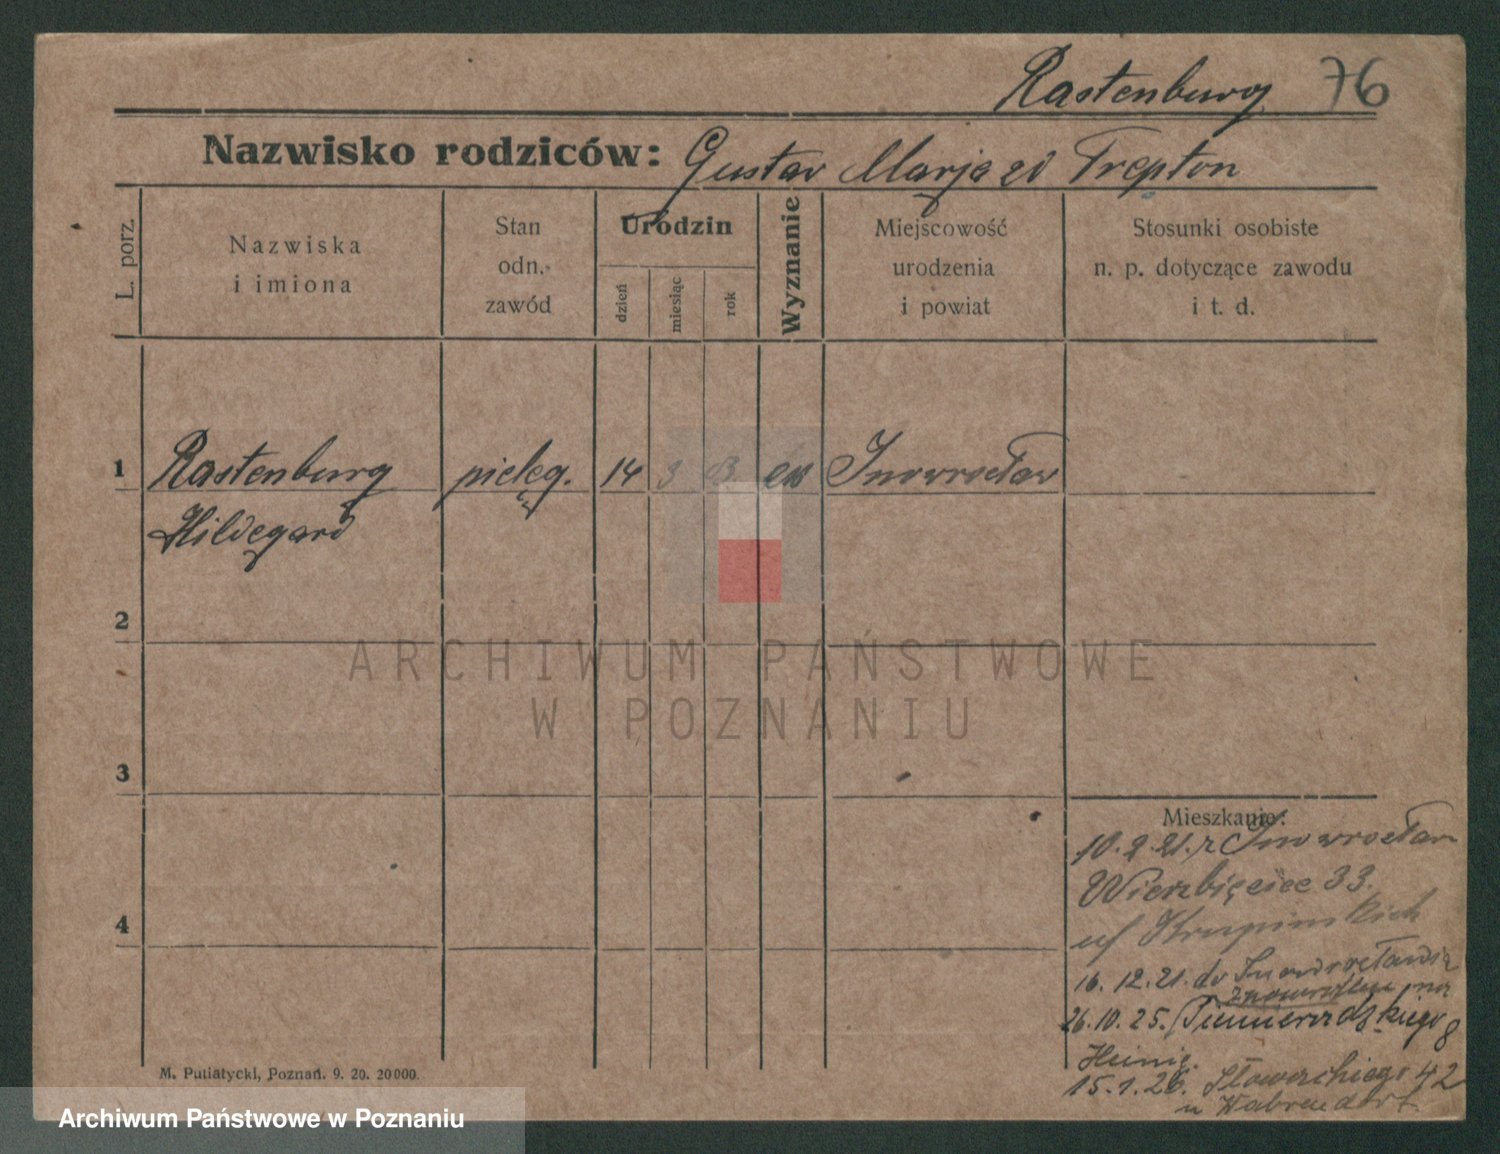 Rastenburg 76
Nazwisko rodziców: Gustav Marja zd Trepton
L. porz.
Nazwiska
i imiona
Stan
odn.
zawód
Urodzin
dzień
miesiąc
rok
Wyznanie
Miejscowość
urodzenia
i powiat
Stosunki osobiste
n. p. dotyczące zawodu
i t. d.
1 Rastenburg pielęg. 14 3 ew Inowrocław
Hildegard
2
3
4
ARCHIWUM PAŃSTWOWE
W POZNANIU
Mieszkanie:
10. 9. 21. z Inowrocław
Wierzbięcice 33.
16. 12. 21. do Inowrocławia
26. 10. 25.
15. 1. 26. Słowackiego 42
u
M. Putiatycki, Poznań. 9. 20. 20000.
Archiwum Państwowe w Poznaniu